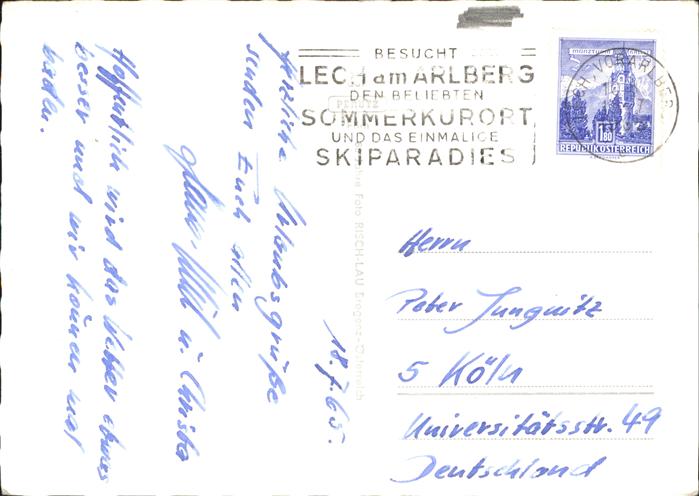 BESUCHT
LECH am ARLBERG
DEN BELIEBTEN
SOMMERKURORT
UND DAS EINMALIGE
SKIPARADIES
MÜNZTURM
1.80
REPUBLIK ÖSTERREICH
PERUTZ
Foto RISCH-LAU Bregenz-Österreich
18.7.65.
herzliche Urlaubsgrüße
senden Euch allen
u. Christa
Hoffentlich wird das Wetter etwas
besser und wir können mal
baden.
Herrn
Peter Jungnitz
5 Köln
Universitätsstr. 49
Deutschland